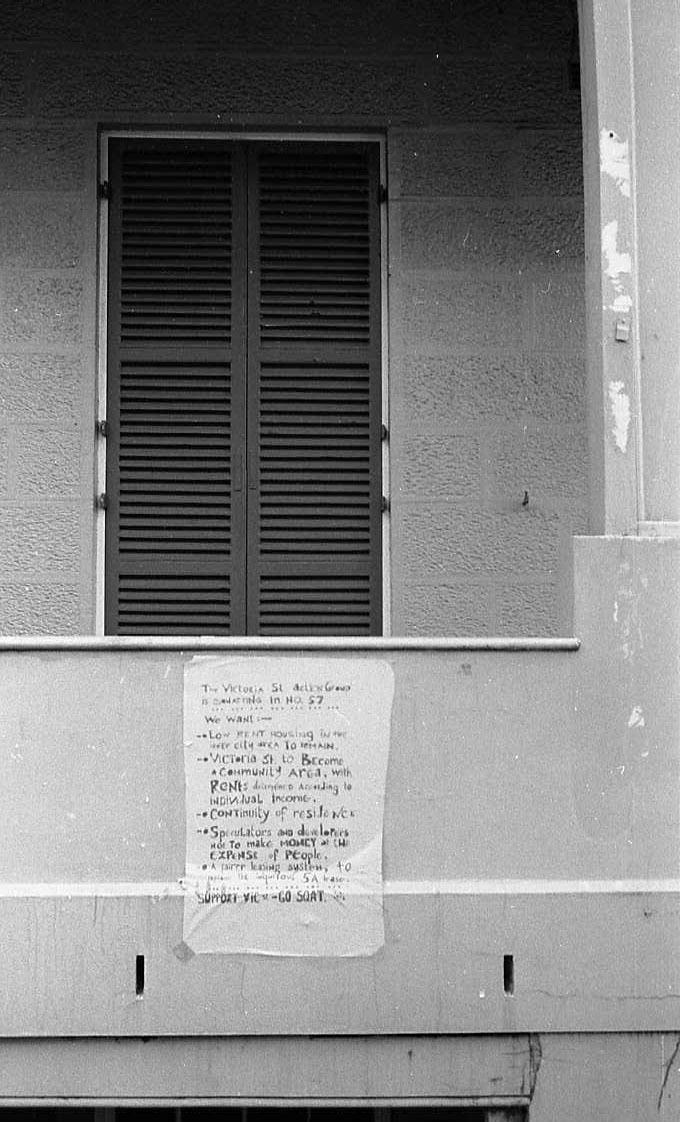 The VICTORIA St. ActION GROUP
is SQUATTING in NO. 57
We want :—
LOW RENT HOUSING IN the
inner city area To remain.
VICTORIA St. to Become
a COMMUNITY AREA, with
RENts determined According to
INDIVIDUAL Income.
CONtINUIty of residence
Speculators AND developers
not To make MONEY at the
EXPENSE of People.
A fairer leasing system, to
the iniquitous 5A lease.
SUPPORT VIC St - GO SQAT.